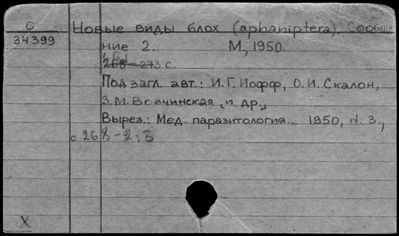 О
34399
Новые виды блох (aphaniptera). Сообще
ние 2. М., 1950.
268-273 с.
Под загл. авт.: И.Г. Иофф, О.И. Скалон,
З.М. и др.
Вырез.: Мед. паразитология. 1950, N. 3.,
с. 268-2
X